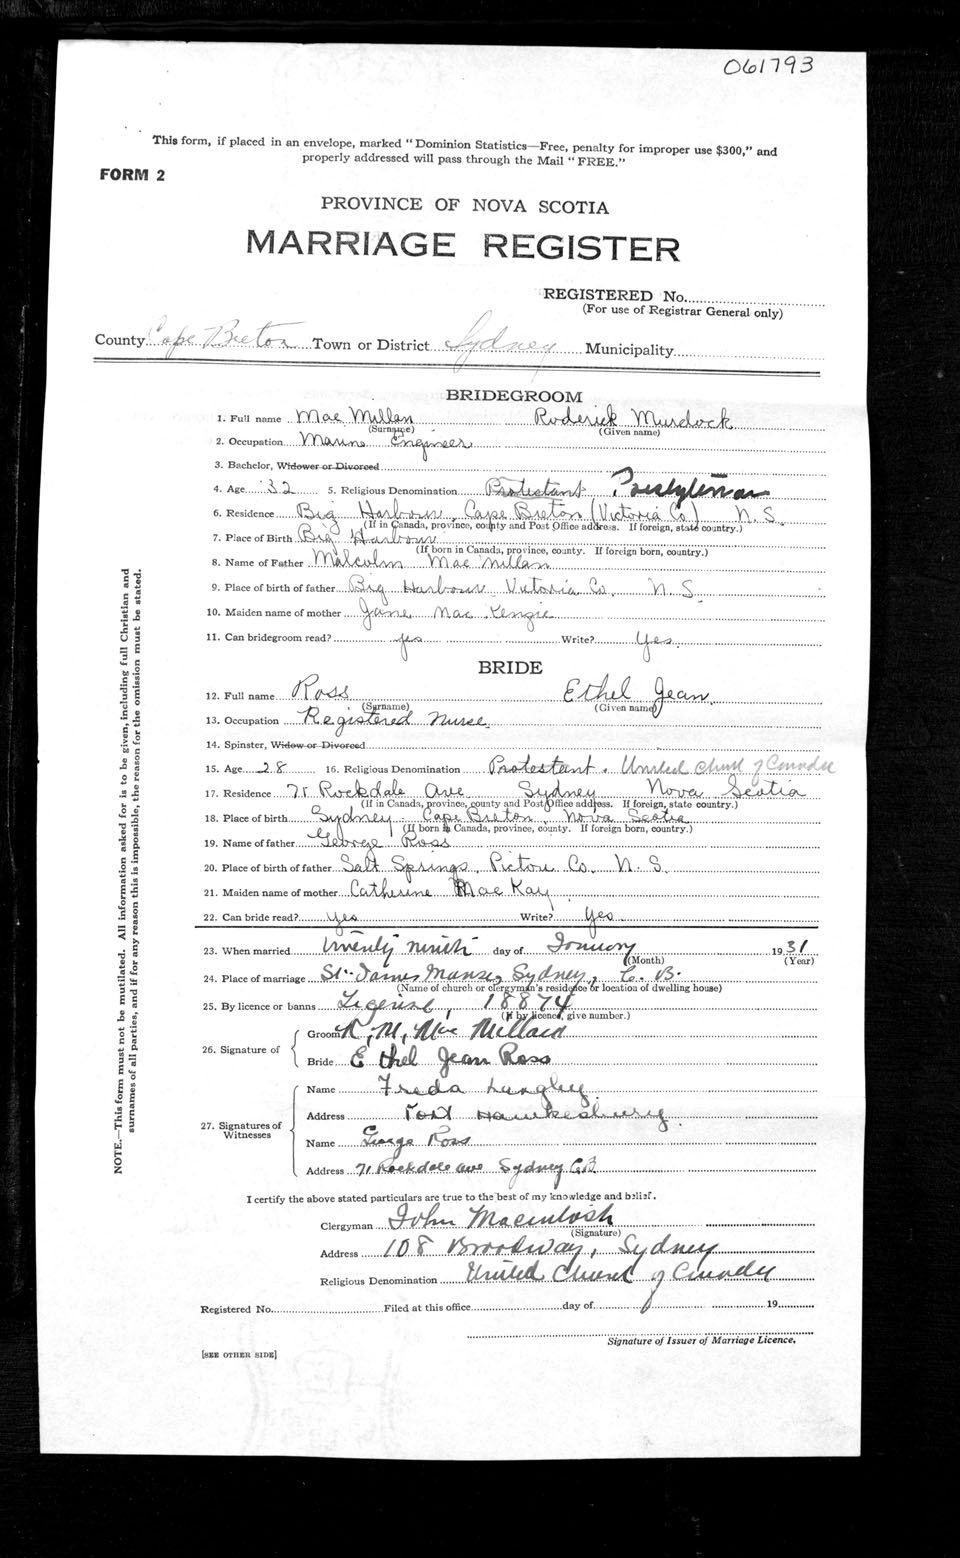 061793
This form, if placed in an envelope, marked "Dominion Statistics—Free, penalty for improper use $300," and
properly addressed will pass through the Mail "FREE."
FORM 2
PROVINCE OF NOVA SCOTIA
MARRIAGE REGISTER
REGISTERED No.
(For use of Registrar General only)
County Cape Breton Town or District Sydney Municipality
BRIDEGROOM
1. Full name Mac Millan Roderick Murdock
(Surname) (Given name)
2. Occupation Marine Engineer
3. Bachelor, Widower or Divorced
4. Age 32 5. Religious Denomination Protestant Presbyterian
6. Residence Big Harbour, Cape Breton (Victoria Co) N.S.
(If in Canada, province, county and Post Office address. If foreign, state country.)
7. Place of Birth Big Harbour
(If born in Canada, province, county. If foreign born, country.)
8. Name of Father Malcolm Mac Millan
9. Place of birth of father Big Harbour Victoria Co. N.S.
10. Maiden name of mother Jane Mac Kenzie
11. Can bridegroom read? yes Write? Yes
BRIDE
12. Full name Ross Ethel Jean
(Surname) (Given name)
13. Occupation Registered Nurse
14. Spinster, Widow or Divorced
15. Age 28 16. Religious Denomination Protestant. United Church of Canada
17. Residence 71 Rockdale Ave Sydney Nova Scotia
(If in Canada, province, county and Post Office address. If foreign, state country.)
18. Place of birth Sydney Cape Breton, Nova Scotia
(If born in Canada, province, county. If foreign born, country.)
19. Name of father George Ross
20. Place of birth of father Salt Springs, Pictou Co. N.S.
21. Maiden name of mother Catherine Mac Kay
22. Can bride read? yes Write? Yes
23. When married twenty ninth day of January 1931
(Month) (Year)
24. Place of marriage St. James Manse, Sydney, C.B.
(Name of church or clergyman's residence or location of dwelling house)
25. By licence or banns License, 18874
(If by licence, give number.)
26. Signature of
Groom R. M. Mac Millan
Bride Ethel Jean Ross
27. Signatures of Witnesses
Name Freda Langley
Address Port Hawkesbury
Name George Ross
Address 71 Rockdale Ave Sydney C.B.
I certify the above stated particulars are true to the best of my knowledge and belief.
Clergyman John Macintosh
(Signature)
Address 108 Broadway, Sydney
Religious Denomination United Church of Canada
Registered No. Filed at this office day of 19
Signature of Issuer of Marriage Licence.
[SEE OTHER SIDE]
NOTE.—This form must not be mutilated. All information asked for is to be given, including full Christian and
surnames of all parties, and if for any reason this is impossible, the reason for the omission must be stated.